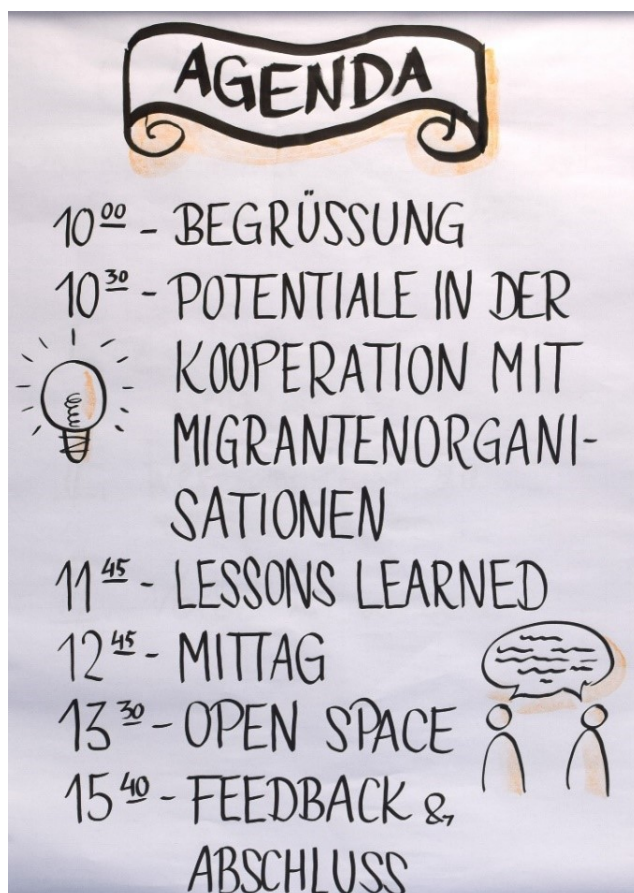 AGENDA
10 00 - BEGRÜSSUNG
10 30 - POTENTIALE IN DER
KOOPERATION MIT
MIGRANTENORGANI-
SATIONEN
11 45 - LESSONS LEARNED
12 45 - MITTAG
13 30 - OPEN SPACE
15 40 - FEEDBACK &
ABSCHLUSS